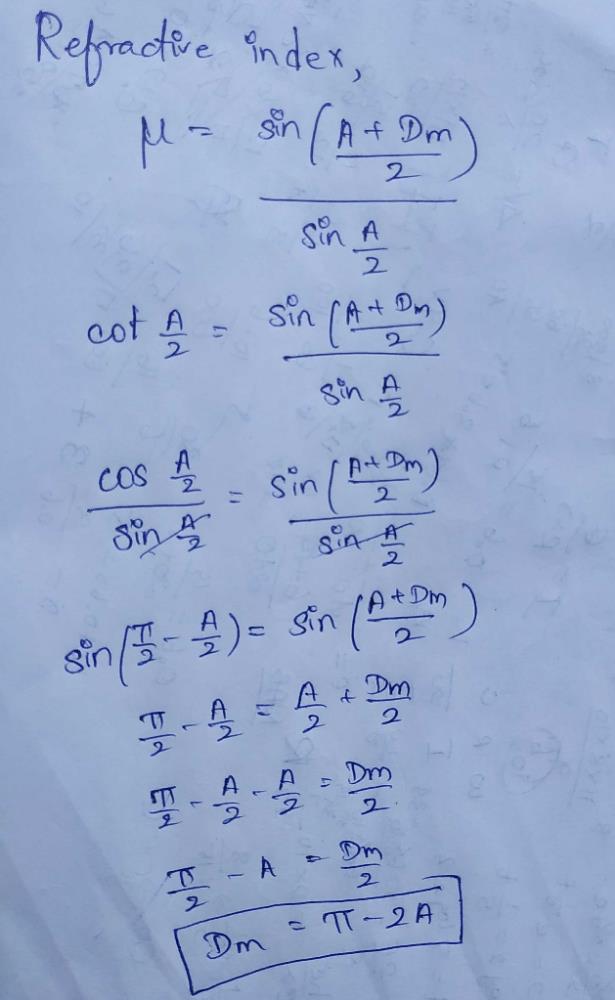 Refractive index,
μ = sin(A + Dm / 2) / sin A/2
cot A/2 = sin(A + Dm / 2) / sin A/2
cos A/2 / sin A/2 = sin(A + Dm / 2) / sin A/2
sin(π/2 - A/2) = sin(A + Dm / 2)
π/2 - A/2 = A/2 + Dm/2
π/2 - A/2 - A/2 = Dm/2
π/2 - A = Dm/2
Dm = π - 2A